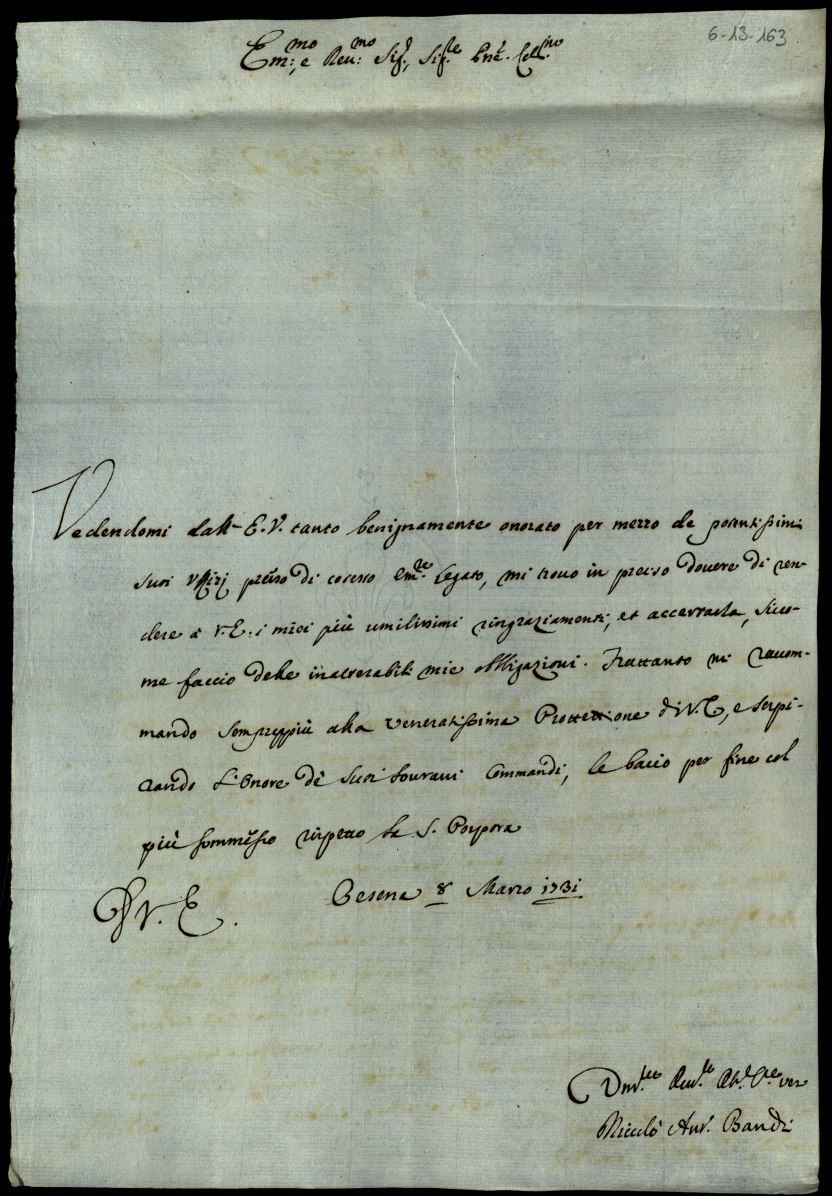 6-13-163
Em:mo, e Reu:mo Sig.r, Sig.re Prne. Col.mo
Vedendomi dall' E. V. tanto benignamente onorato per mezzo de potentissimi
suoi Uffizj presso di cotesto Em.te Legato, mi trovo in preciso dovere di ren-
dere à V. E. i miei più umilissimi ringraziamenti, et accertarla, sicco-
me faccio delle inalterabili mie obbligazioni. Frattanto mi raccom-
mando sempreppiù alla Veneratissima Protettione di V. E., e sospi-
rando l'Onore dè suoi Sourani Commandi, le bacio per fine col
più sommesso rispetto la S. Porpora
Cesena 8 Marzo 1731
Di V. E.
Niccolò Ant.o Bandi